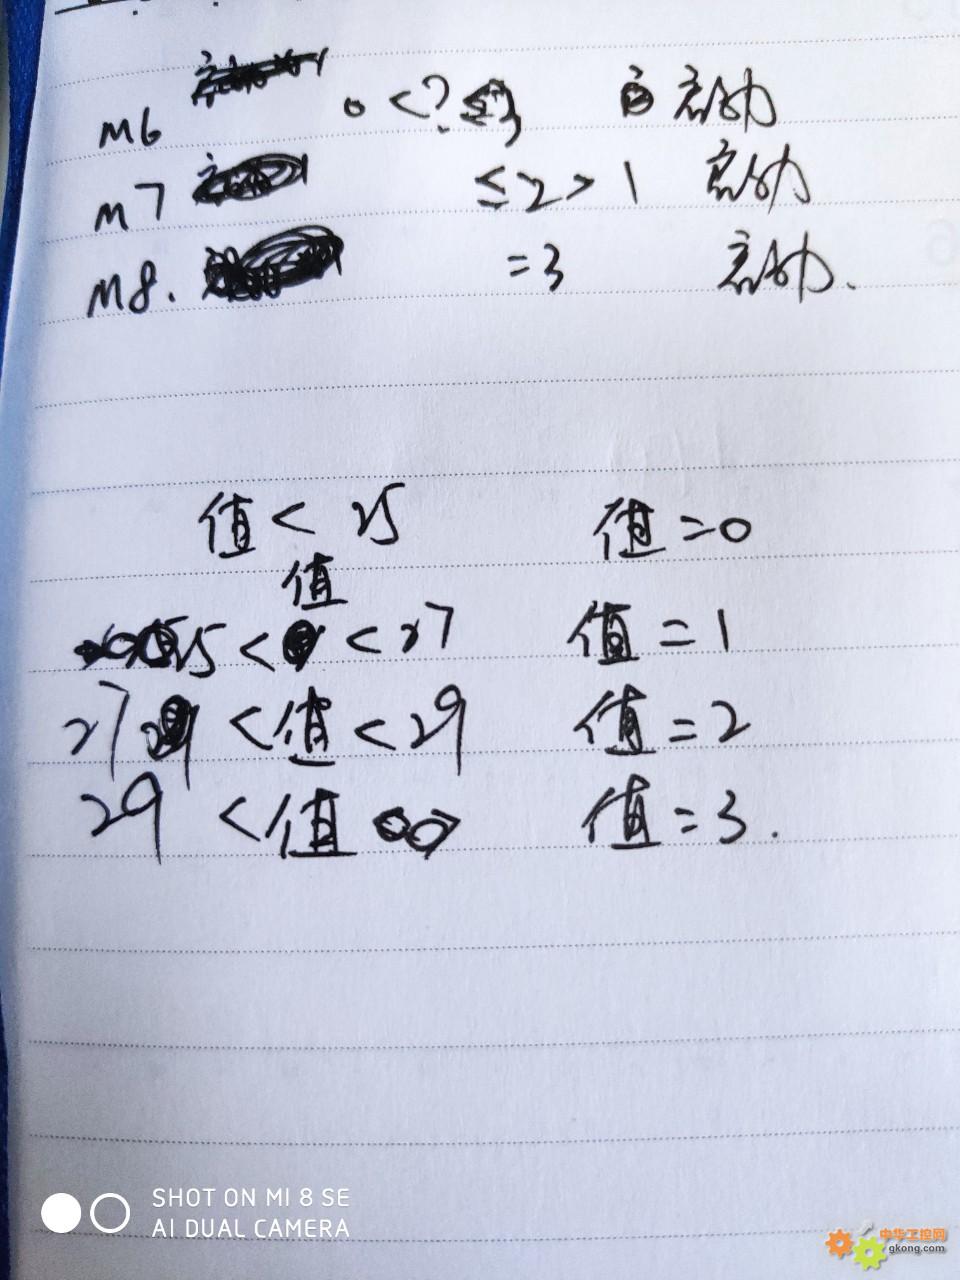 M6 0<? 启动
M7 ≤2>1 启动
M8. =3 启动.
值<25 值=0
值
25< <27 值=1
27 <值<29 值=2
29 <值 值=3.
SHOT ON MI 8 SE
AI DUAL CAMERA
中华工控网
gkong.com